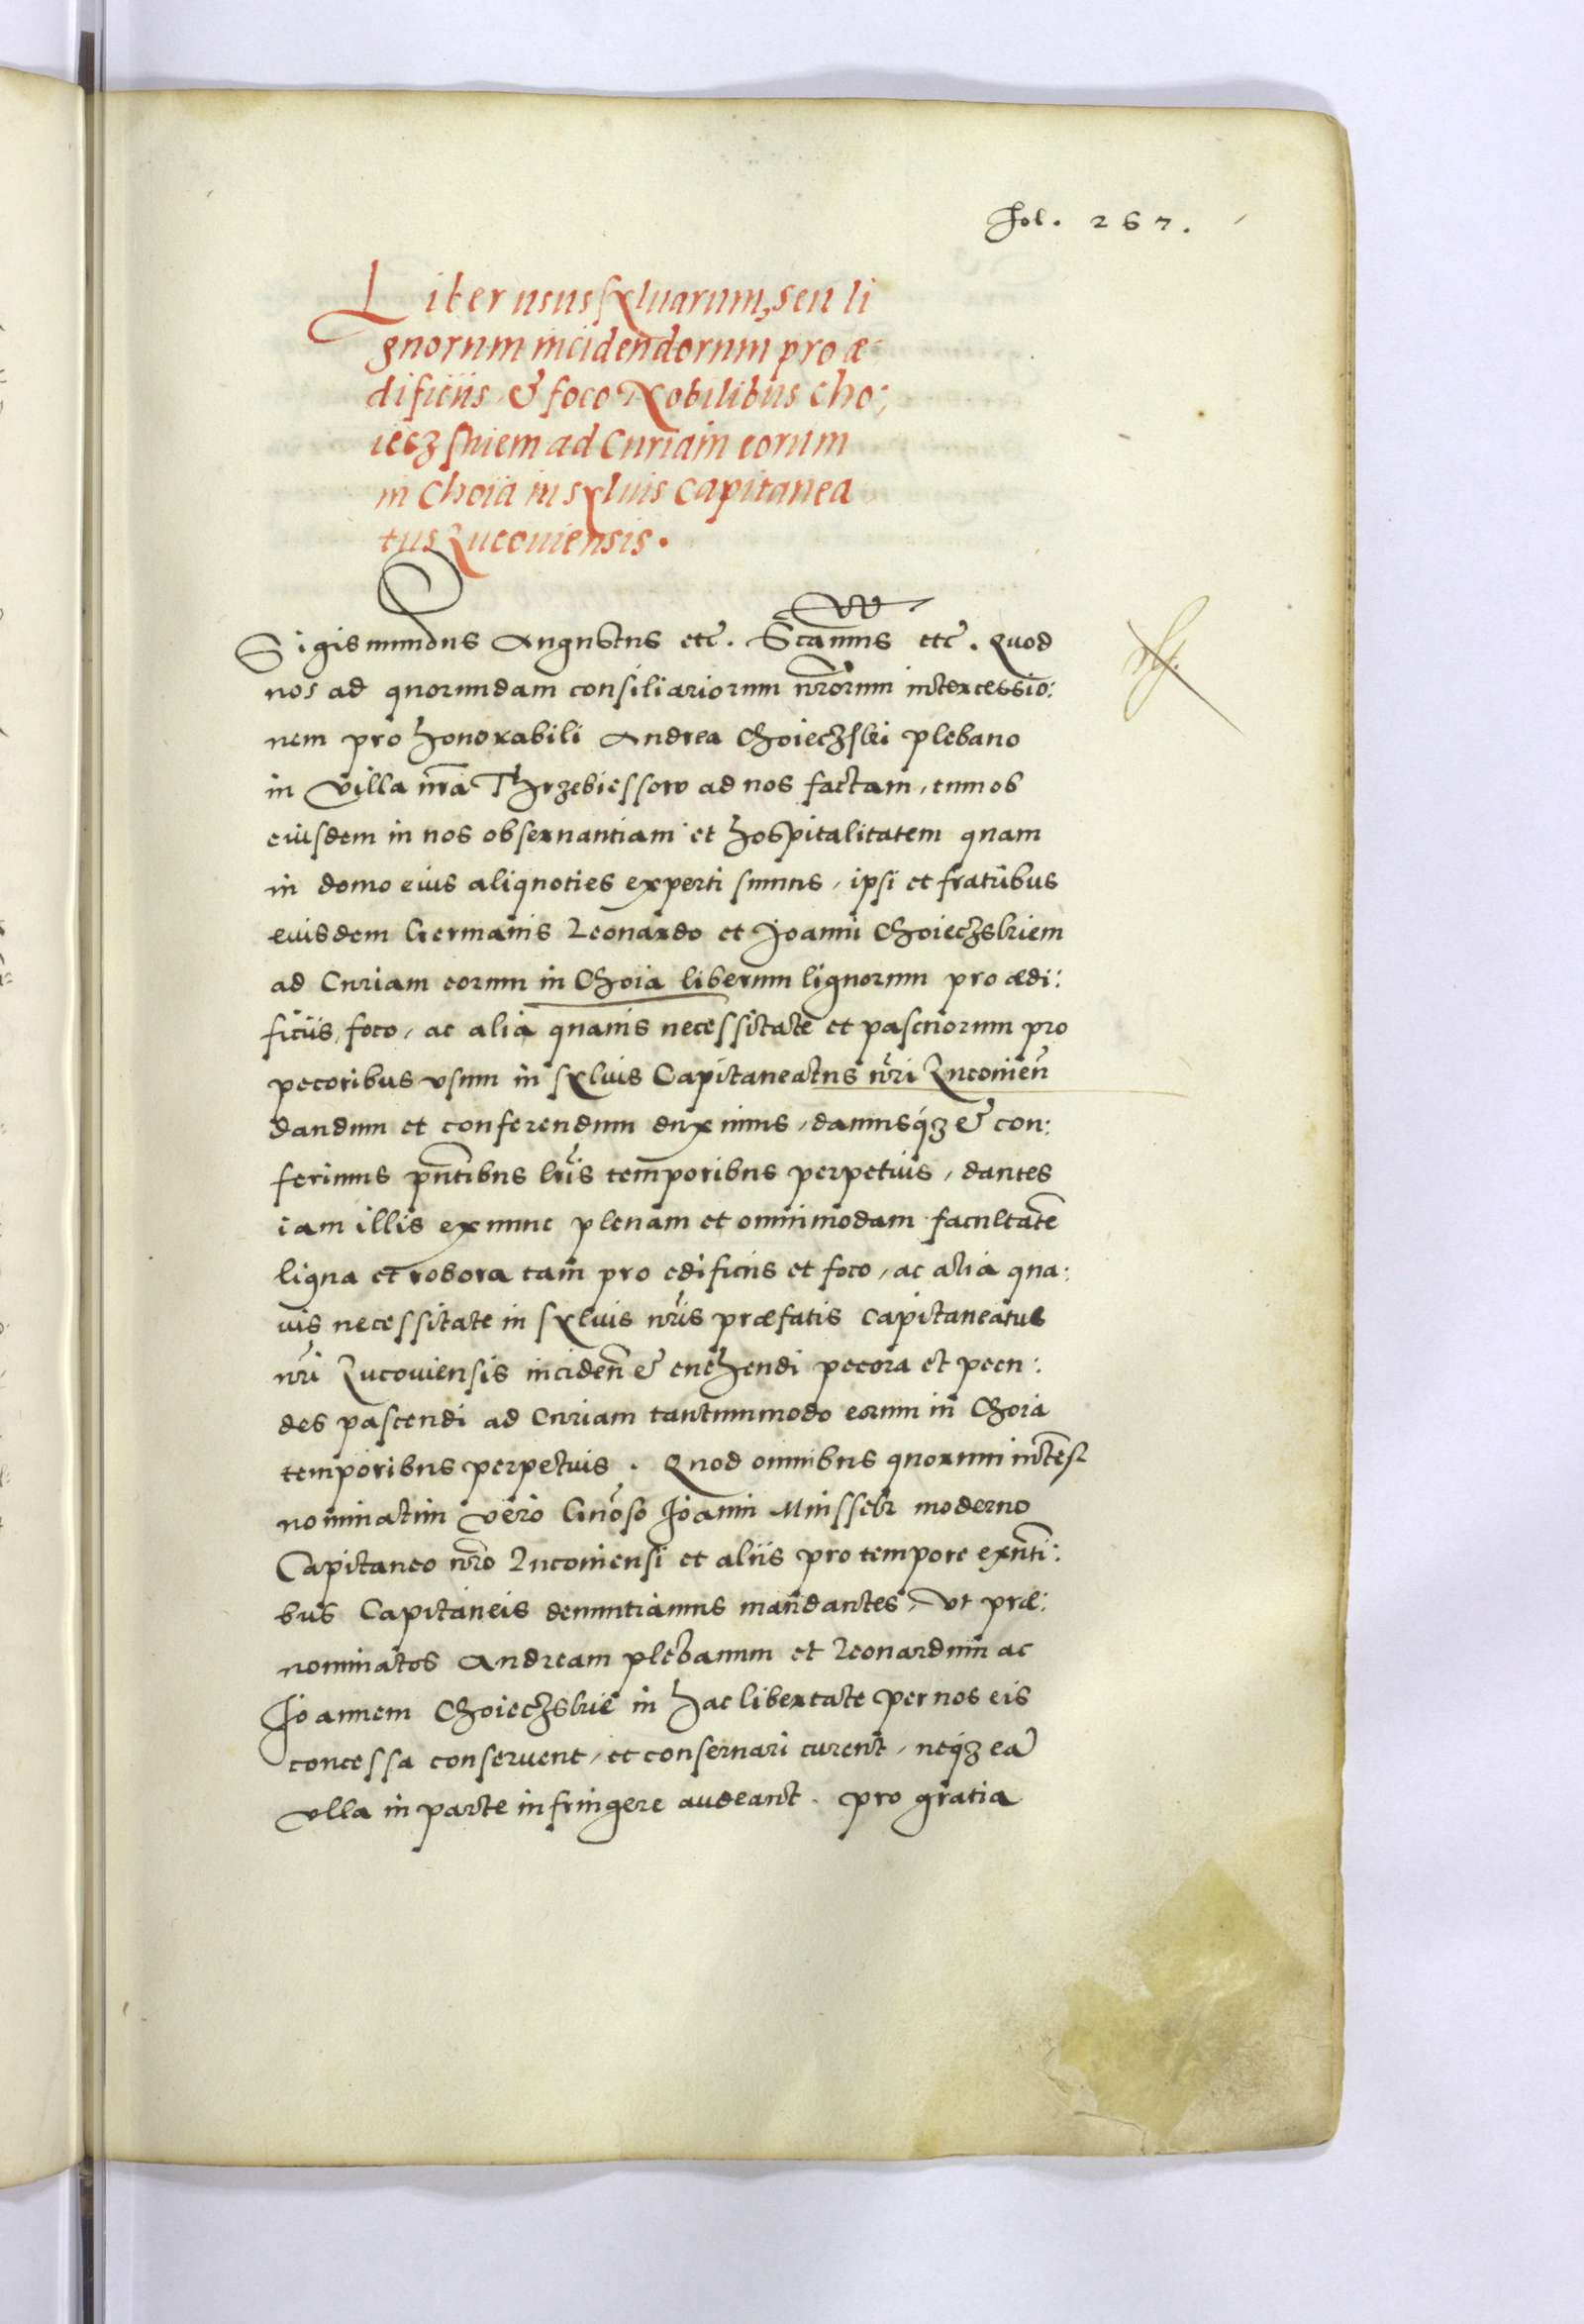 Fol. 267.
Liber usus sylvarum, seu li
gnorum incidendorum pro æ:
dificiis & foco Nobilibus Cho:
ieczskiem ad Curiam eorum
in Choia in sylvis Capitanea
tus Lucouiensis.
Sigismundus Augustus etc̃. Sc̃amus etc̃. Quod
nos ad quorundam consiliariorum nr̃orum intercessio:
nem pro honorabili Andrea Choieczski plebano
in Villa nr̃a Thrzebiessow ad nos factam, tum ob
eiusdem in nos obseruantiam et hospitalitatem quam
in domo eius aliquoties experti sumus, ipsi et fratribus
euisdem Germanis Leonardo et Joanni Choieczskiem
ad Curiam eorum in Choia liberum lignorum pro ædi:
ficiis, foco, ac alia quauis necessitate et pascuorum pro
pecoribus vsum in syluis Capitaneatus nr̃i Lucouien̄
dandum et conferendum duximus, damusq́ꝫ & con:
ferimus pñtibus lr̃is temporibus perpetuis, dantes
iam illis ex nunc plenam et omnimodam facultatē
ligna et robora tam pro edificiis et foco, ac alia qua:
uis necessitate in syluis nr̃is præfatis Capitaneatus
nr̃i Lucouiensis inciden̄ & euehendi pecora et pecu:
des pascendi ad Curiam tantummodo eorum in Choia
temporibus perpetuis. Quod omnibus quorum intēst
nominatim vero Gnõso Joanni Mnissek moderno
Capitaneo nr̃o Lucouiensi et aliis pro tempore exñti:
bus Capitaneis denuntiamus mandantes, vt præ:
nominatos Andream plebanum et Leonardum ac
Joannem Choieczskie in hac libertate per nos eis
concessa conseruent, et conseruari curent, neq́ꝫ eã
vlla in parte infringere audeant. pro gratia